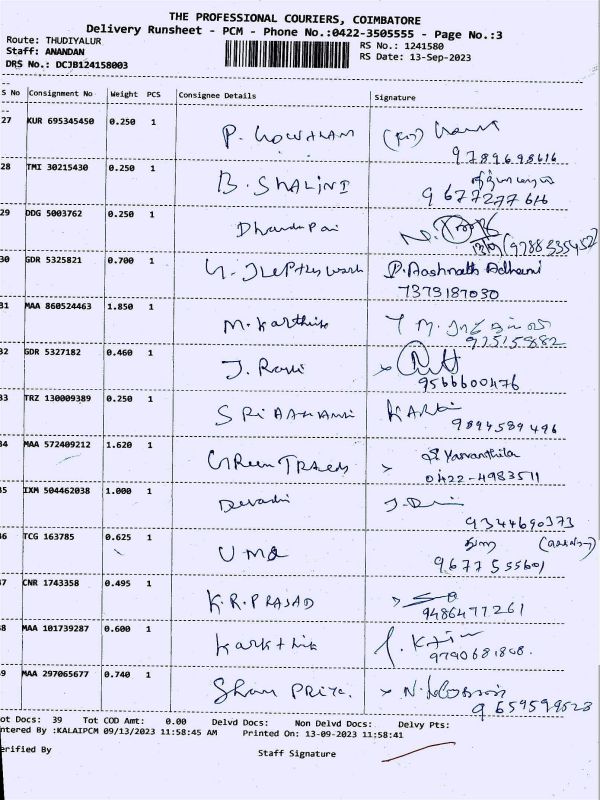 THE PROFESSIONAL COURIERS, COIMBATORE
Delivery Runsheet - PCM - Phone No.:0422-3505555 - Page No.:3
Route: THUDIYALUR
Staff: ANANDAN
DRS No.: DCJB124158003
RS No.: 1241580
RS Date: 13-Sep-2023
S No Consignment No Weight PCS Consignee Details Signature
27 KUR 695345450 0.250 1 P. GOWTHAM
9789698616
28 TMI 30215430 0.250 1 B. SHALINI
9677277616
29 DDG 5003762 0.250 1
(9788535452)
30 GDR 5325821 0.700 1 D. Aashnath Adhani
7373187030
31 MAA 860524463 1.850 1 M. Karthik
32 GDR 5327182 0.460 1 J. Ravi
9566600476
33 TRZ 130009389 0.250 1
9894589496
34 MAA 572409212 1.620 1 Green Trades
0422-4983511
35 IXM 504462038 1.000 1 Devadri
9344690373
36 TCG 163785 0.625 1 UMA
9677555601
37 CNR 1743358 0.495 1 K.R. PRASAD
9486477261
38 MAA 101739287 0.600 1 Karthik
9790681808.
39 MAA 297065677 0.740 1 Sham PRIYA.
9659599523
ot Docs: 39 Tot COD Amt: 0.00 Delvd Docs: Non Delvd Docs: Delvy Pts:
ntered By :KALAIPCM 09/13/2023 11:58:45 AM Printed On: 13-09-2023 11:58:41
erified By Staff Signature